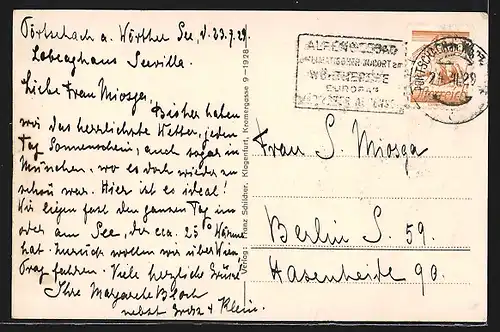 Pörtschach a. Wörther See, d. 23.7.29.
Liebe Frau Miosga,
Bisher haben
wir das herrlichste Wetter, jeden
Tag Sonnenschein, auch sogar in
München, wo es doch wieder zu
schön war. Hier ist es ideal!
Wir liegen fast den ganzen Tag im
oder am See, der ca. 25° Wärme
hat. Zurück wollen wir über Wien,
Prag fahren. Viele herzliche Grüße
Ihre Margarete Bloch
nebst
Verlag Franz Schildner, Klagenfurt, Kramergasse 9 -1928-
ALPENSEEBAD
KLIMATISCHER KURORT
WÖRTHERSEE
EUROPAS
WÄRMSTER ALPENSEE
PÖRTSCHACH AM
29
Frau S. Miosga
Berlin S. 59.
Hasenheide 90.